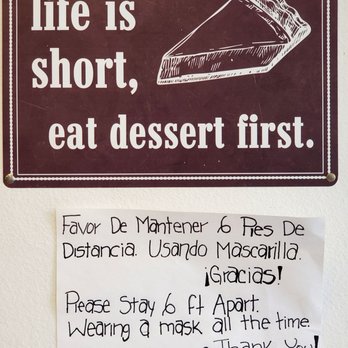 life is
short,
eat dessert first.
Favor De Mantener 6 Pies De
Distancia. Usando Mascarilla.
¡Gracias!
Please Stay 6 ft Apart.
Wearing a mask all the time.
Thank You!